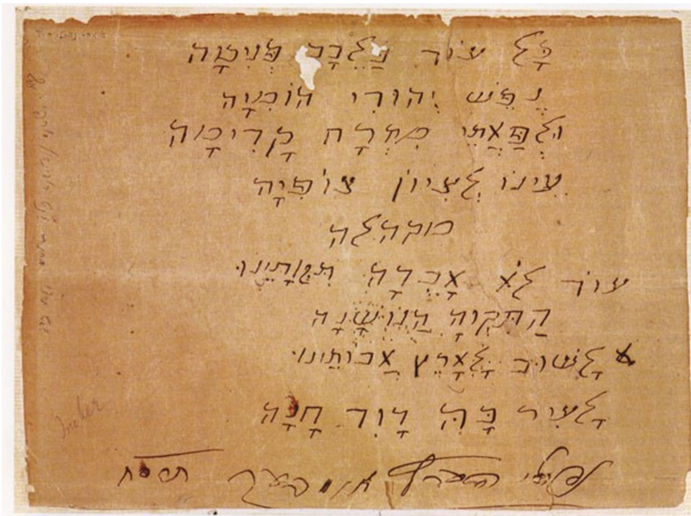 כָּל עוֹד בַּלֵּבָב פְּנִימָה
נֶפֶשׁ יְהוּדִי הוֹמִיָּה
וּלְפַאֲתֵי מִזְרָח קָדִימָה
עֵינוֹ לְצִיּוֹן צוֹפִיָּה
מקהלה
עוֹד לֹא אָבְדָה תִּקְוָתֵינוּ
הַתִּקְוָה הַנּוֹשָׁנָה
לָשׁוּב לְאֶרֶץ אֲבוֹתֵינוּ
לְעִיר בָּהּ דָּוִד חָנָה
נפתלי הערץ אימבער תרסח
Imber